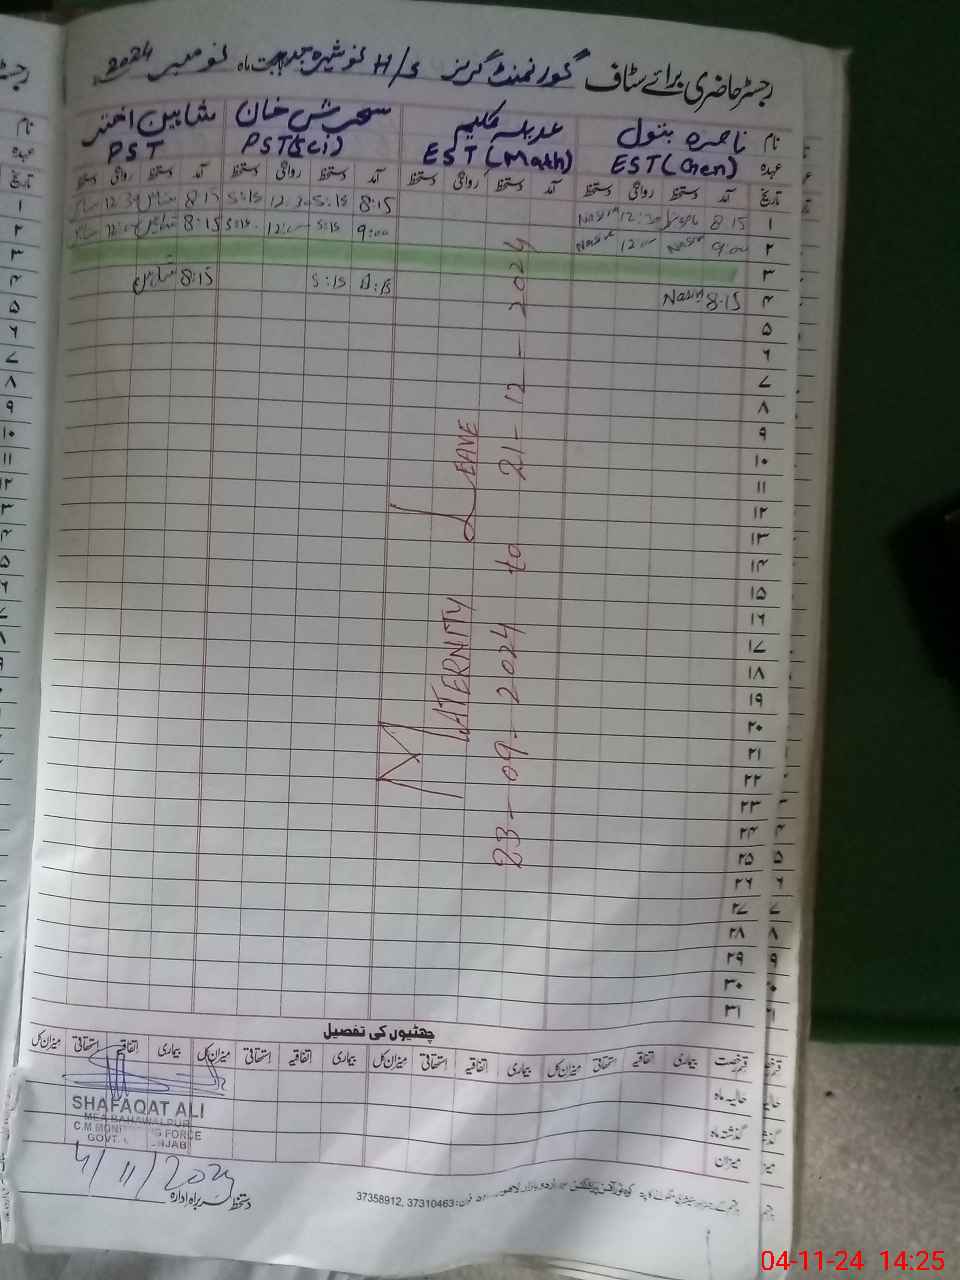 رجسٹر حاضری برائے سٹاف گورنمنٹ گرلز H/S نوشہرہ جدید بابت ماہ نومبر 2024
نام ناصرہ بتول عدیلہ کلیم سحرش خان شاہین اختر
عہدہ EST (Chem) EST (Math) PST(Sci) PST
تاریخ آمد دستخط روانگی دستخط آمد دستخط روانگی دستخط آمد دستخط روانگی دستخط آمد دستخط روانگی دستخط
۱ 8:15 12:30 8:15 S:15 S:15 8:15 12:30
۲ 9:00 Nasira 12:00 Nasira 9:00 S:15 12:00 S:15 8:15 شاہین 12:00
۳
۴ 8:15 Nasira S:15 8:15 شاہین
۵
۶
۷
۸
۹
۱۰
۱۱
۱۲
۱۳
۱۴
۱۵
۱۶
۱۷
۱۸
۱۹
۲۰
۲۱
۲۲
۲۳
۲۴
۲۵
۲۶
۲۷
۲۸
۲۹
۳۰
۳۱
MATERNITY LEAVE
23-09-2024 to 21-12-2024
چھٹیوں کی تفصیل
قسم رخصت بیماری اتفاقیہ استحقاقی میزان کل بیماری اتفاقیہ استحقاقی میزان کل بیماری اتفاقیہ استحقاقی میزان کل بیماری اتفاقیہ استحقاقی میزان کل
حالیہ ماہ
گذشتہ ماہ
میزان
SHAFAQAT ALI
MEA BAHAWALPUR
C.M MONITORING FORCE
GOVT. PUNJAB
4/11/2024
دستخط سربراہ ادارہ
فون: 37310463, 37358912
04-11-24 14:25